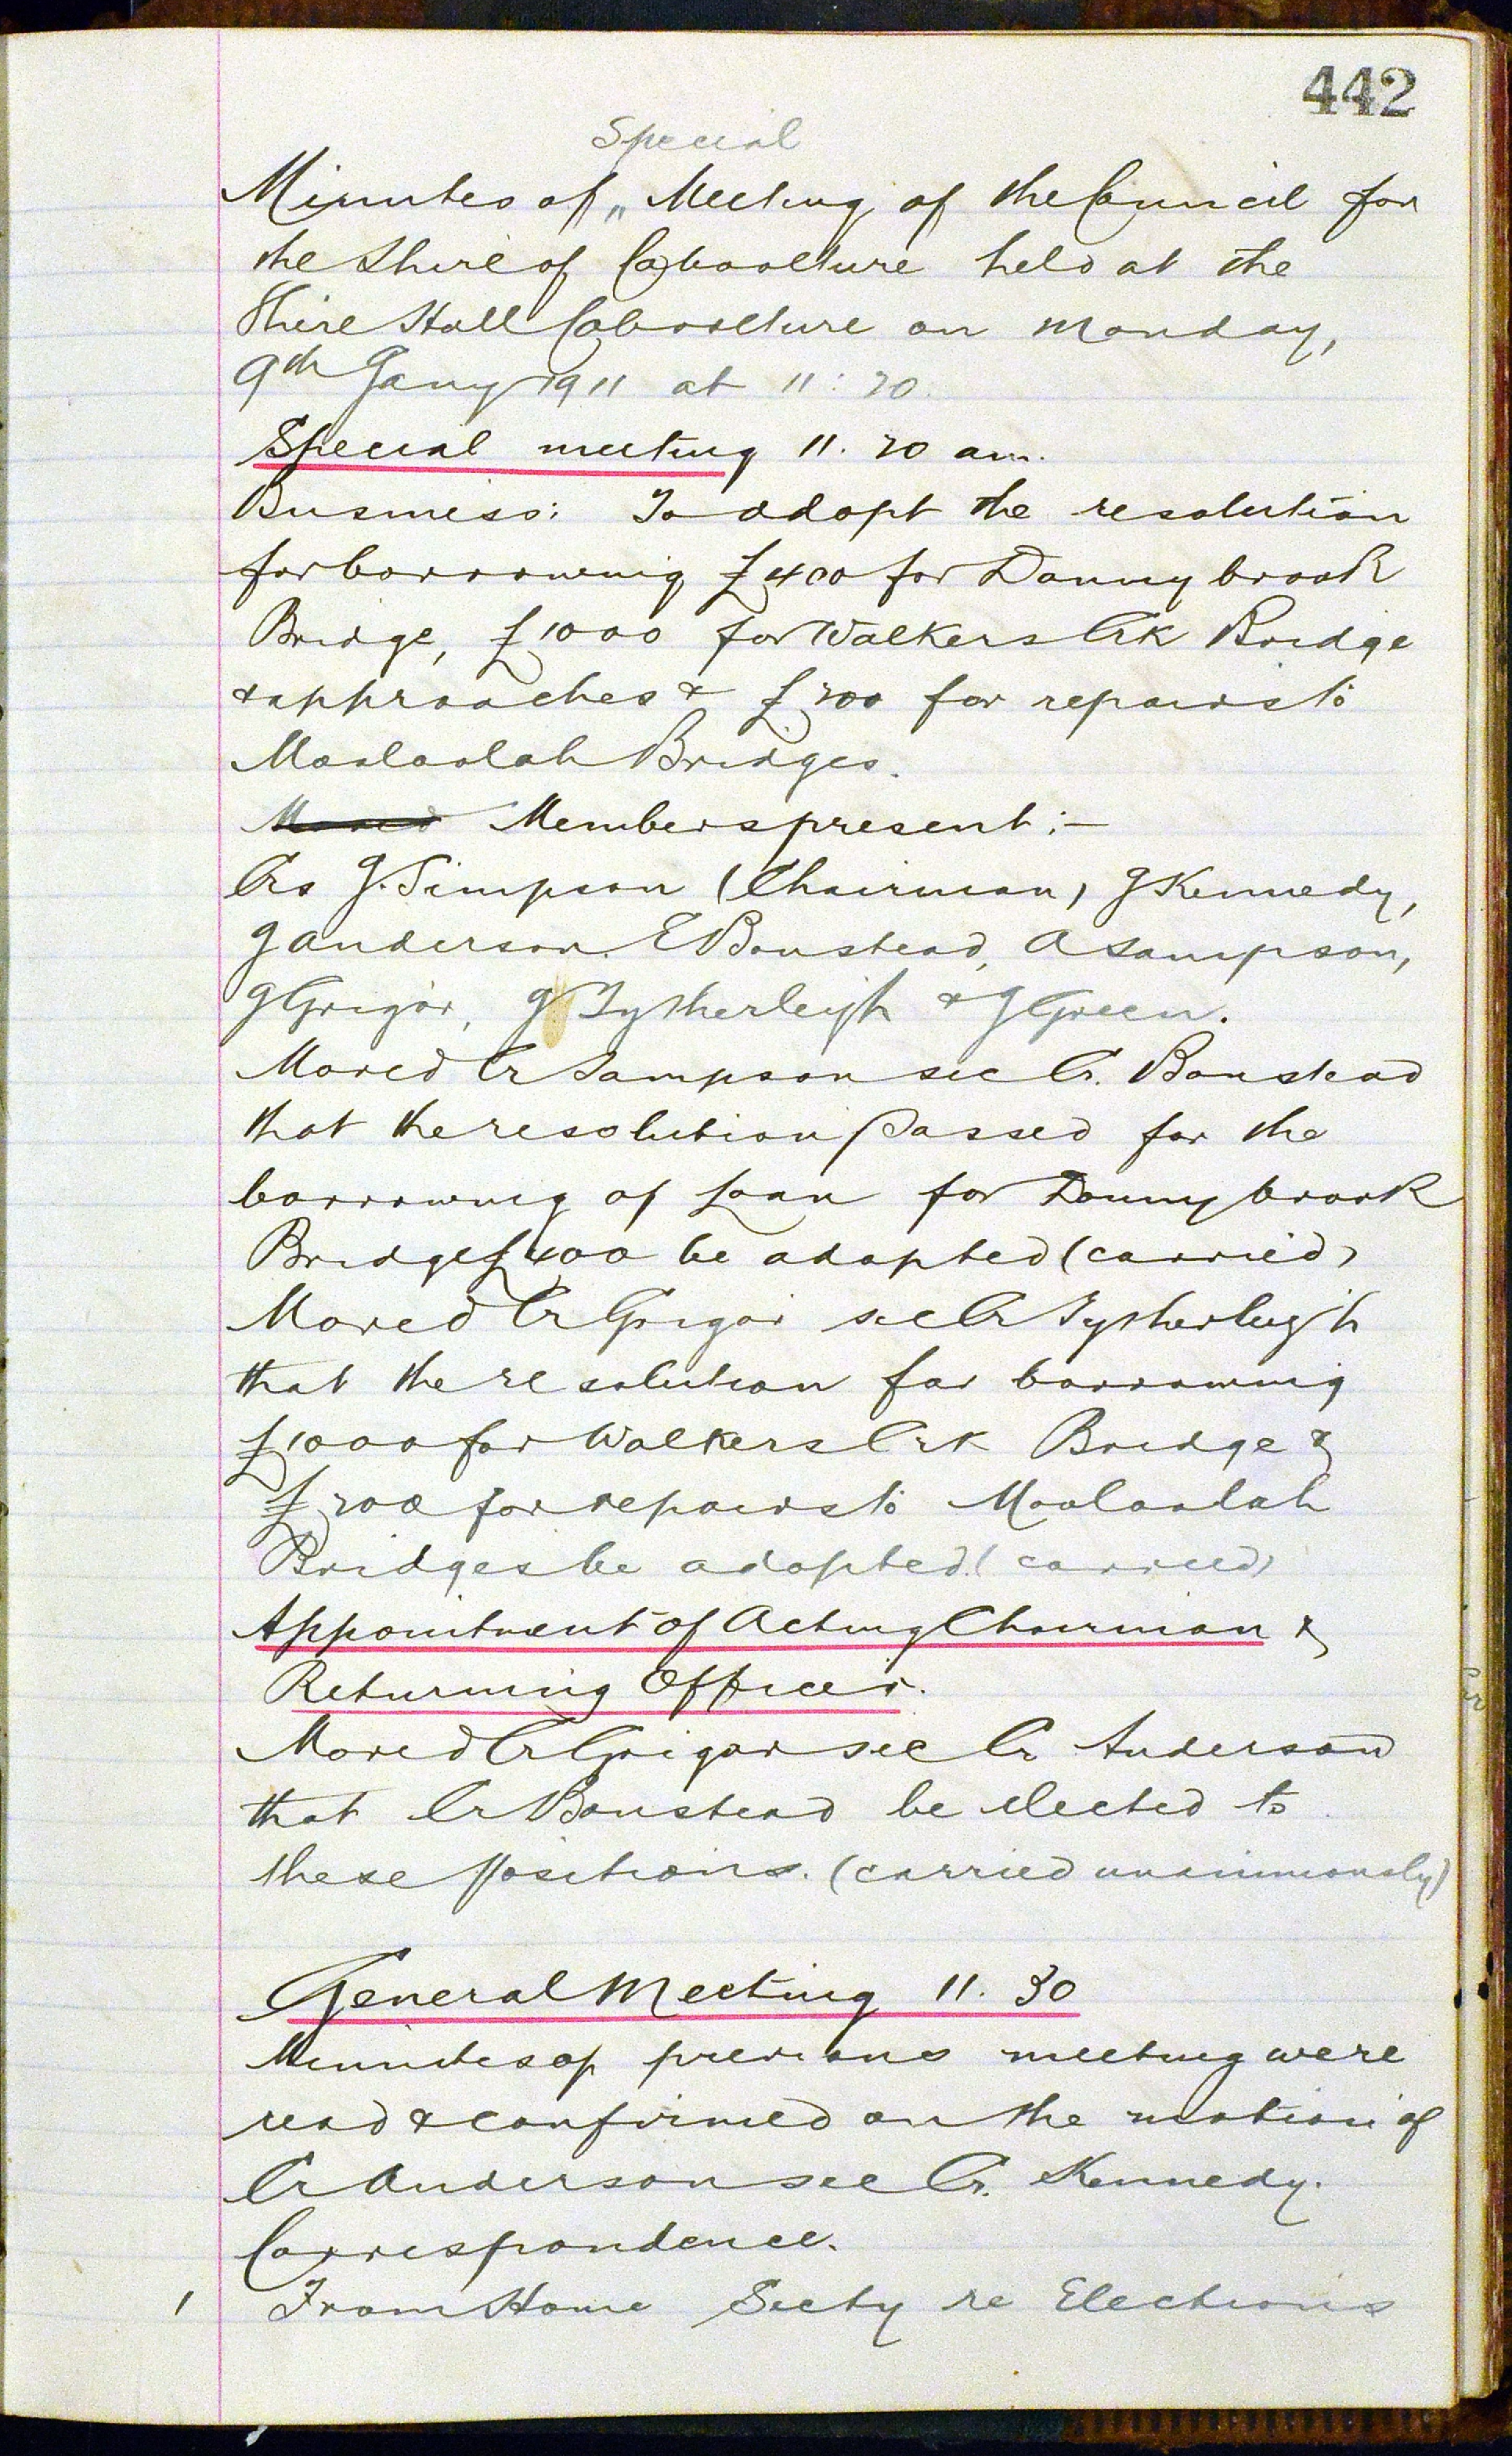 442
Special
Minutes of „ Meeting of the Council for
the Shire of Caboolture held at the
Shire Hall Caboolture on Monday,
9th Jany 1911 at 11:20.
Special meeting 11.20 am.
Business: To adopt the resolution
for borrowing £400 for Donnybrook
Bridge, £1000 for Walkers Crk Bridge
& approaches & £200 for repairs to
Mooloolah Bridges.
Moved Members present:-
Crs J. Simpson (Chairman) J Kennedy,
J Anderson. E Boustead, A Sampson,
J Grigor, J Tytherleigh & J Green.
Moved Cr Sampson sec Cr. Boustead
that the resolution passed for the
borrowing of Loan for Donnybrook
Bridge £400 be adopted (carried)
Moved Cr Grigor sec Cr Tytherleigh
that the resolution for borrowing
£1000 for Walkers Crk Bridge &
£200 for repairs to Mooloolah
Bridges be adopted. (carried)
Appointment of Acting Chairman &
Returning Officer.
Moved Cr Grigor sec Cr Anderson
that Cr Boustead be elected to
these positions. (carried unanimously)
General Meeting 11.30
Minutes of previous meeting were
read & confirmed on the motion of
Cr Anderson sec Cr. Kennedy.
Correspondence.
1 From Home Secty re Elections